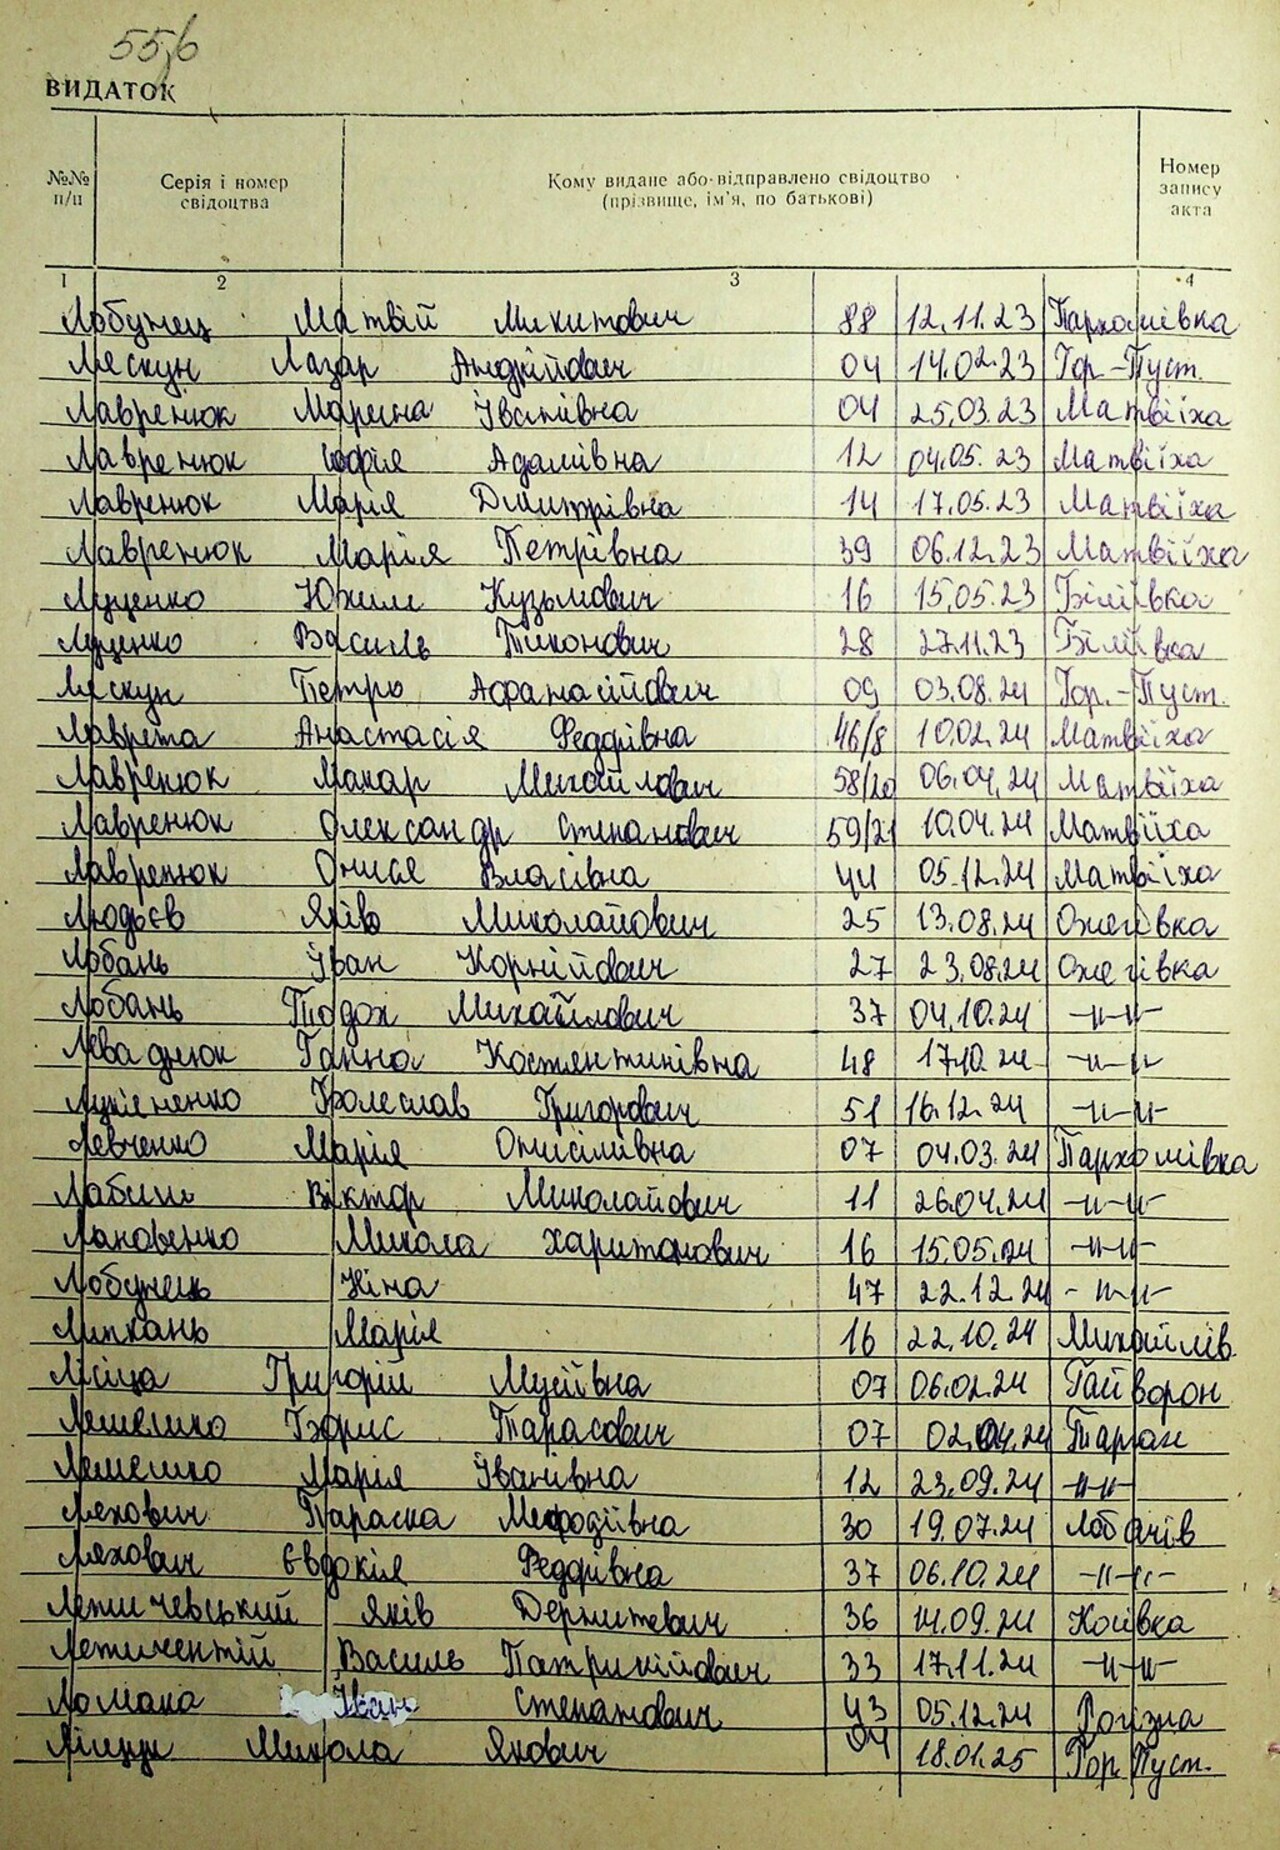 556
ВИДАТОК
№№ п/п Серія і номер свідоцтва Кому видане або відправлено свідоцтво (прізвище, ім'я, по батькові) Номер запису акта
1 2 3 4
Лобунец Матвій Микитович 88 12.11.23 Пархомівка
Ляскун Лазар Андрійович 04 14.02.23 Гор.-Пуст.
Лавренюк Марина Іванівна 04 25.03.23 Матвіїха
Лавренюк Софія Адамівна 12 04.05.23 Матвіїха
Лавренюк Марія Дмитрівна 14 17.05.23 Матвіїха
Лавренюк Марія Петрівна 39 06.12.23 Матвіїха
Луценко Юхим Кузьмович 16 15.05.23 Біліївка
Луценко Василь Тихонович 28 27.11.23 Біліївка
Ляскун Петро Афанасійович 09 03.08.24 Гор.-Пуст.
Лаврета Анастасія Федорівна 46/8 10.02.24 Матвіїха
Лавренюк Макар Михайлович 58/20 06.04.24 Матвіїха
Лавренюк Олександр Степанович 59/21 10.04.24 Матвіїха
Лавренюк Онися Власівна 44 05.12.24 Матвіїха
Людьєв Яків Миколайович 25 13.08.24 Ожегівка
Лобань Іван Корнійович 27 23.08.24 Ожегівка
Лобань Тодох Михайлович 37 04.10.24 -"-"-
Леваднюк Ганна Костянтинівна 48 17.10.24 -"-"-
Лук'яненко Болеслав Григорович 51 16.12.24 -"-"-
Левченко Марія Онисімівна 07 04.03.24 Пархомівка
Лабиш Віктор Миколайович 11 26.04.24 -"-"-
Лановенко Микола Харитонович 16 15.05.24 -"-"-
Лобунець Ніна 47 22.12.24 -"-"-
Липкань Марія 16 22.10.24 Михайлів.
Лісіца Григорій Мусіївна 07 06.02.24 Гайворон
Лемешко Борис Тарасович 07 02.04.24 Тарган
Лемешко Марія Іванівна 12 23.09.24 -"-"-
Ляхович Параска Мефодіївна 30 19.07.24 Лобачів
Ляхович Євдокія Федорівна 37 06.10.24 -"-"-
Летичевський Яків 36 14.09.24 Косівка
Василь Патрикійович 33 17.11.24 -"-"-
Ломака Іван Степанович 43 05.12.24 Рогізна
Микола Якович 04 18.01.25 Гор. Пуст.